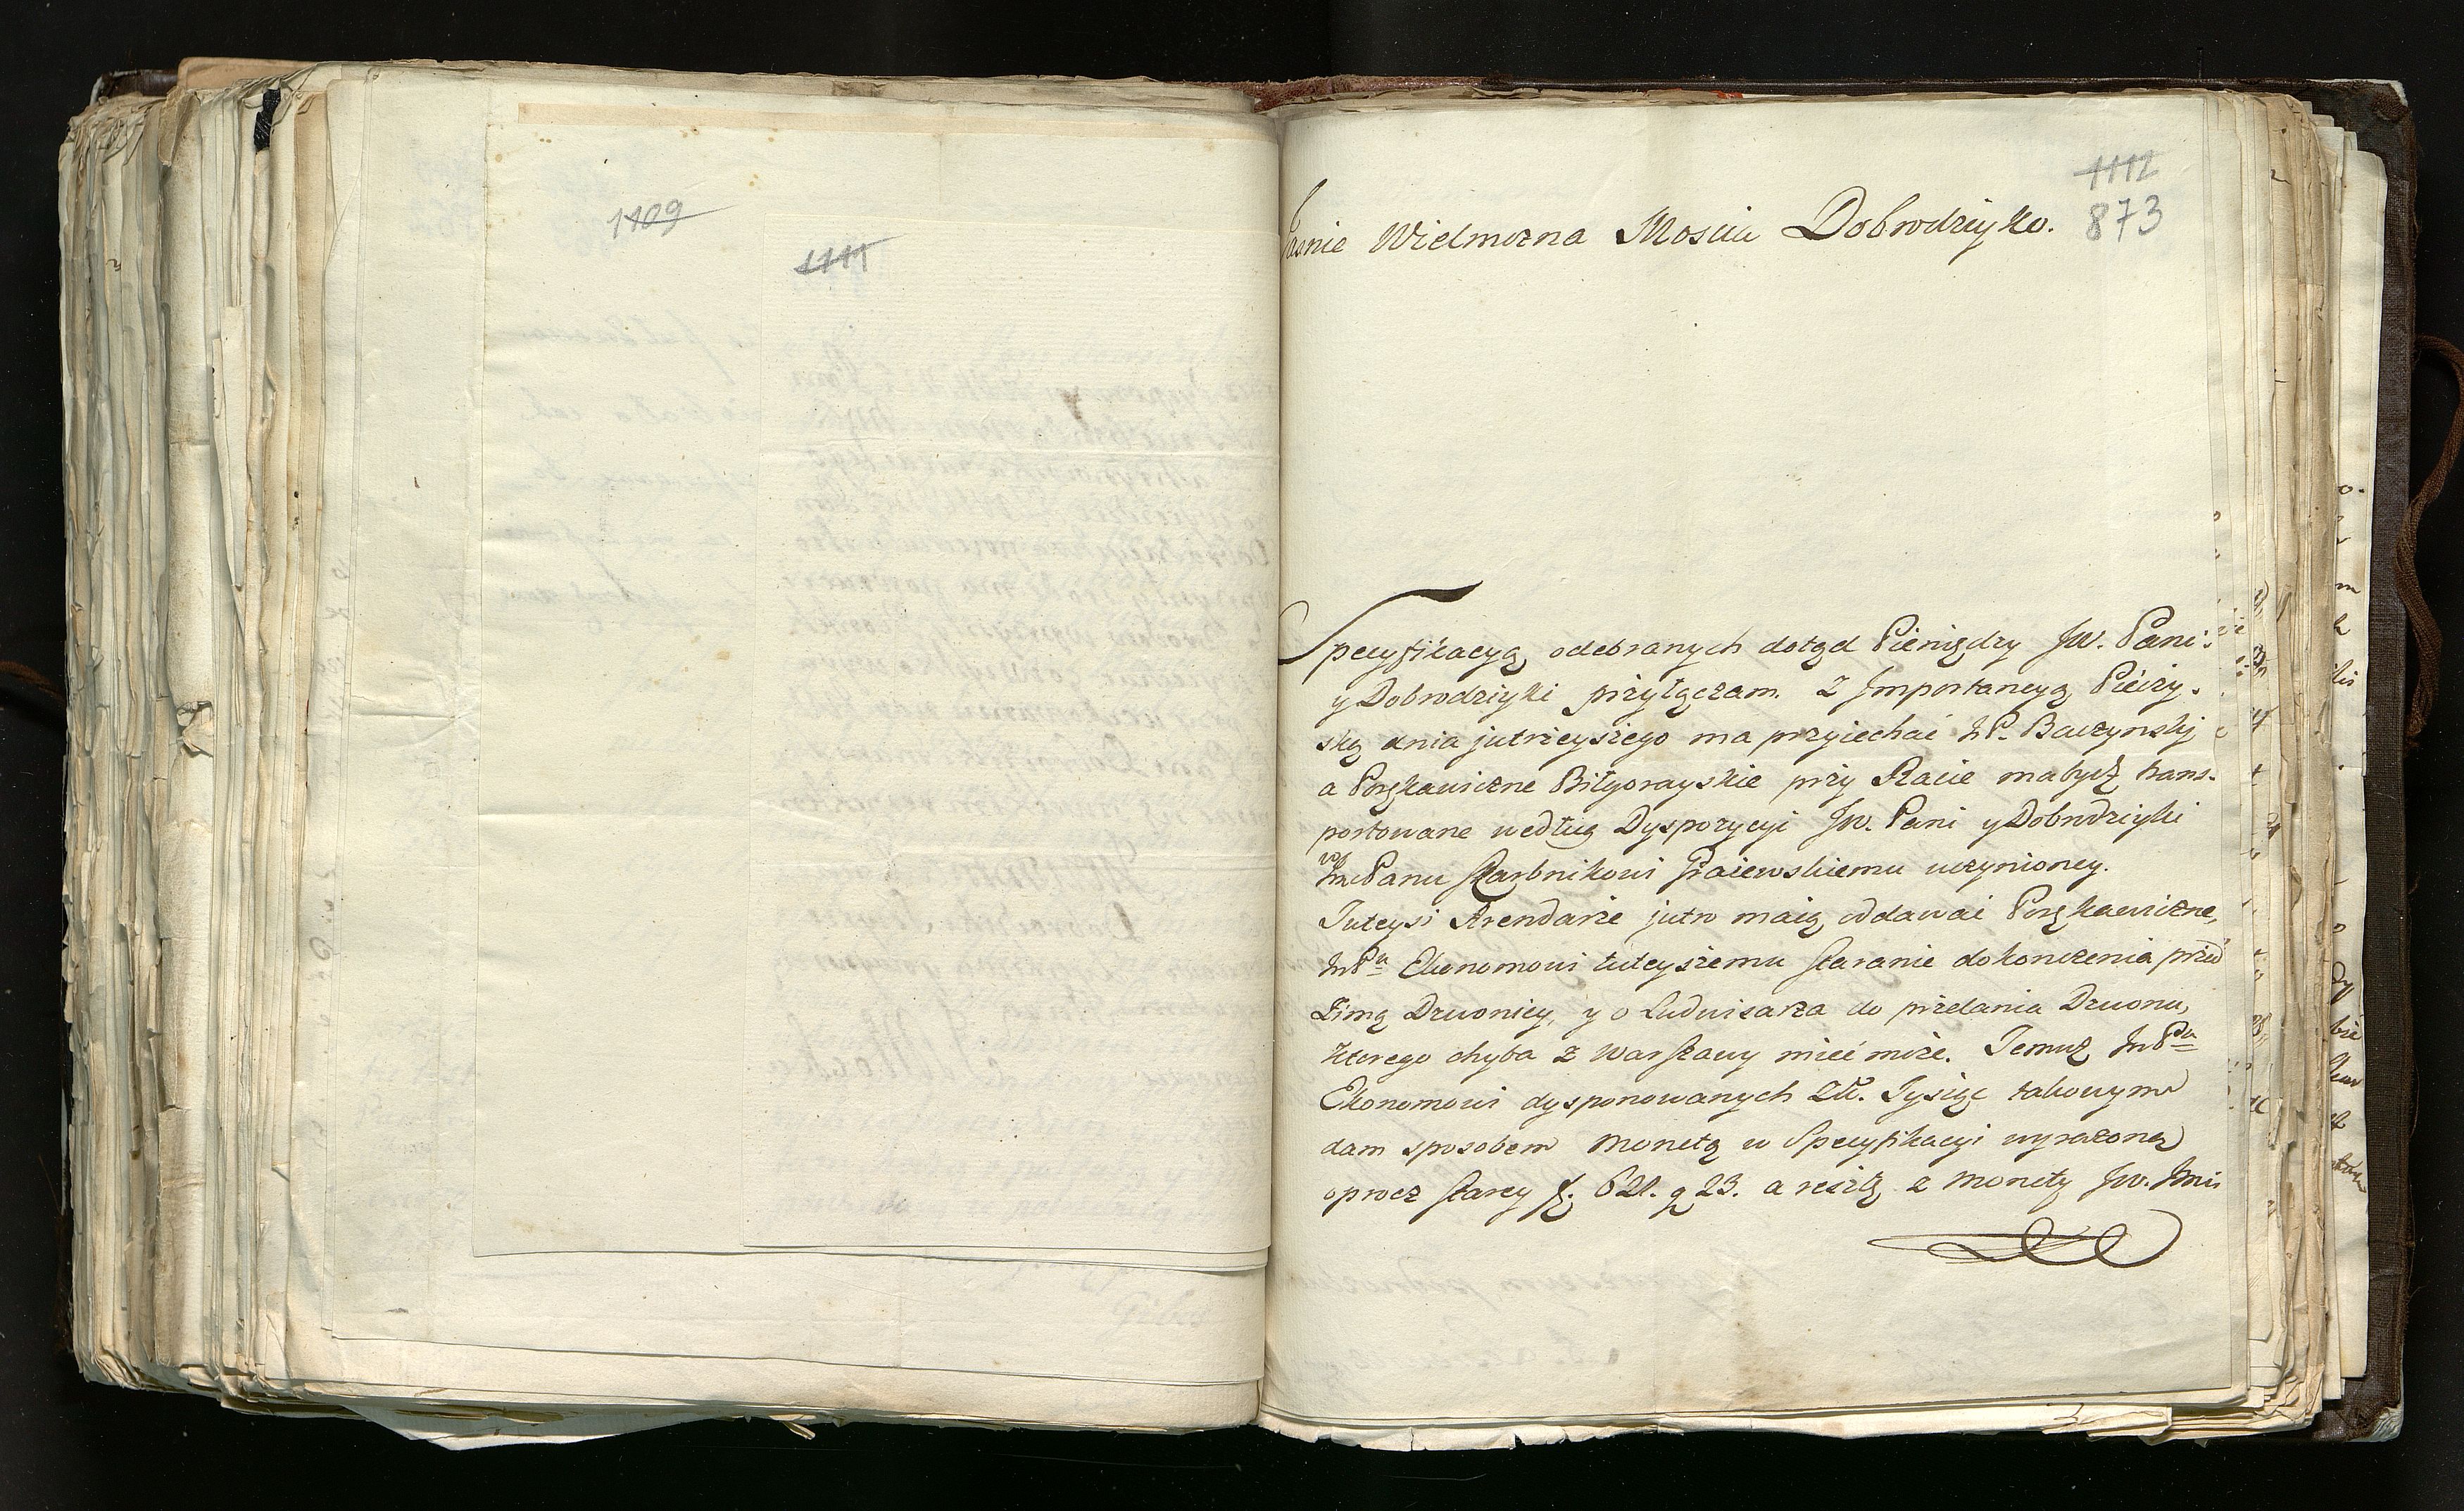 1109
1111
1112
873
Jasnie Wielmozna Moscia Dobrodzieyko.
Specyfikacyą odebranych dotąd Pieniędzy Jw. Pani:
y Dobrodzieyki przyłączam. Z Importancyą
ską dnia jutrzeyszego ma przyiechać JmP. Baczynskj
a Porękawiczne Biłgorayskie przy Racie ma bydz trans-
portowane według Dyspozycyi Jw. Pani y Dobrodzieyki
w JmPanu Skarbnikowi Grajewskiemu uczynioney.
Tuteysi Arendarze jutro maią oddawać Porękawiczne,
JmPu Ekonomowi tuteyszemu staranie dokonczenia przed
Zimą Dzwonicy, y o Ludwisarza do przelania Dzwonu,
ktorego chyba z Warszawy mieć może. Temuz JmPu
Ekonomowi dysponowanych Zł. Tysiąc takowym
dam sposobem Monetą w Specyfikacyi wyrazoną
oprocz starey f. 621. g 23. a resztę z Monety Jw. Jmci